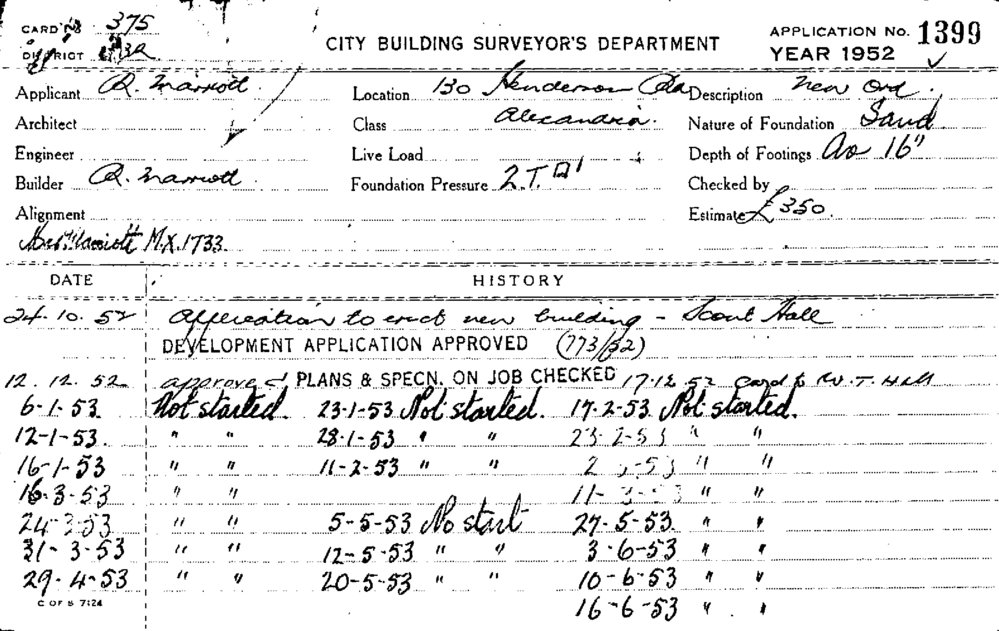 CARD No 375
DISTRICT
CITY BUILDING SURVEYOR'S DEPARTMENT
APPLICATION No. 1399
YEAR 1952
Applicant R. Marriott. Location 130 Henderson Rd Description New Ord.
Architect Class Alexandria. Nature of Foundation Sand
Engineer Live Load Depth of Footings As 16"
Builder R. Marriott Foundation Pressure 2.T. □' Checked by
Alignment Estimate £350.
Marriott M.X.1733.
DATE HISTORY
24.10.52 Application to erect new building - Scout Hall
DEVELOPMENT APPLICATION APPROVED (773/52)
12.12.52 approved PLANS & SPECN. ON JOB CHECKED 17.12.52 Card to W. T. Hall
6-1-53 Not started. 23-1-53 Not started. 17-2-53 Not started.
12-1-53 " " 28-1-53 " " 23-2-53 " "
16-1-53 " " 11-2-53 " " 2 -53 " "
16-3-53 " " 11-3-53 " "
24-3-53 " " 5-5-53 No start 27-5-53 " "
31-3-53 " " 12-5-53 " " 3-6-53 " "
29-4-53 " " 20-5-53 " " 10-6-53 " "
C OF S 7124 16-6-53 " "